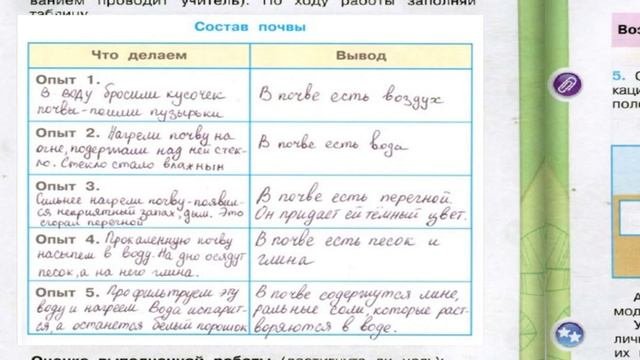 ванием проводит учитель). По ходу работы заполняй
таблицу.
Состав почвы
Что делаем
Вывод
Опыт 1.
В воду бросили кусочек
почвы-пошли пузырьки
В почве есть воздух
Опыт 2. Нагрели почву на
огне, подержали над ней стек-
ло. Стекло стало влажным
В почве есть вода
Опыт 3.
Сильнее нагрели почву-появил-
ся неприятный запах, дым. Это
сгорал перегной
В почве есть перегной.
Он придает ей тёмный цвет.
Опыт 4. Прокаленную почву
насыпем в воду. На дно осядут
песок, а на него глина.
В почве есть песок и
глина
Опыт 5. Профильтруем эту
воду и нагреем Вода испарит-
ся, а останется белый порошок
В почве содержутся мине,
ральные соли, которые раст-
воряются в воде.
Оценка выполненной работы (достигнута ли цель):
Воз
5. С
каци
поло
А
мод
У
личн
их